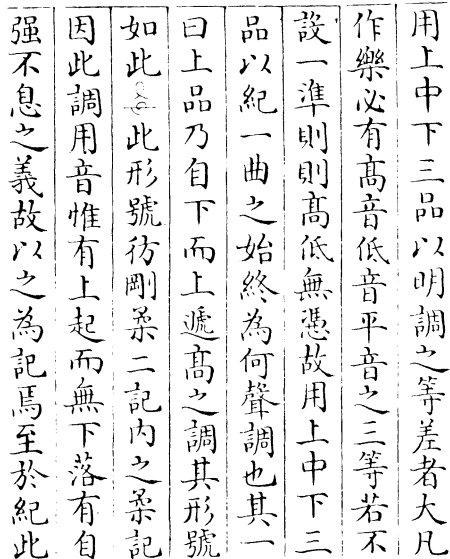 用上中下三品以明調之等差者大凡
作樂必有髙音低音平音之三等若不
設一準則則髙低無憑故用上中下三
品以紀一曲之始終為何聲調也其一
曰上品乃自下而上遞髙之調其形號
如此此形號彷剛柔二記内之柔記
因此調用音惟有上起而無下落有自
强不息之義故以之為記焉至於紀此